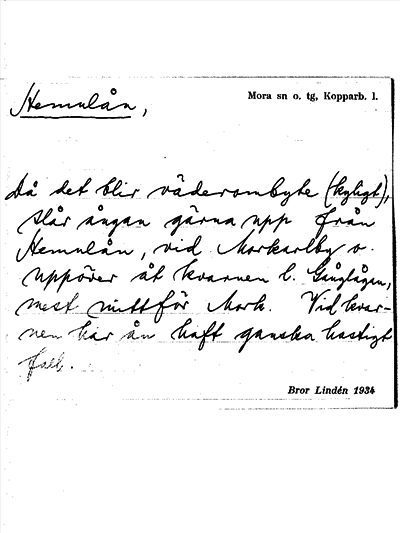 Hemulån,
Mora sn o. tg, Kopparb. l.
Då det blir väderombyte (kyligt),
slår ångan gärna upp från
Hemulån, vid Morkarlby o.
uppöver åt kvarnen l. Gånglågen,
mest mittför Mork. Vid kvar-
nen har ån haft ganska hastigt
fall.
Bror Lindén 1934